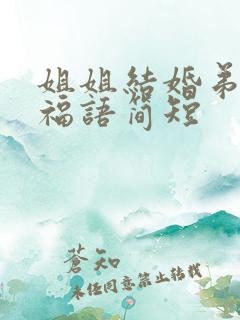 姐姐結婚弟
福語簡短
蒼知
未經同意禁止轉載